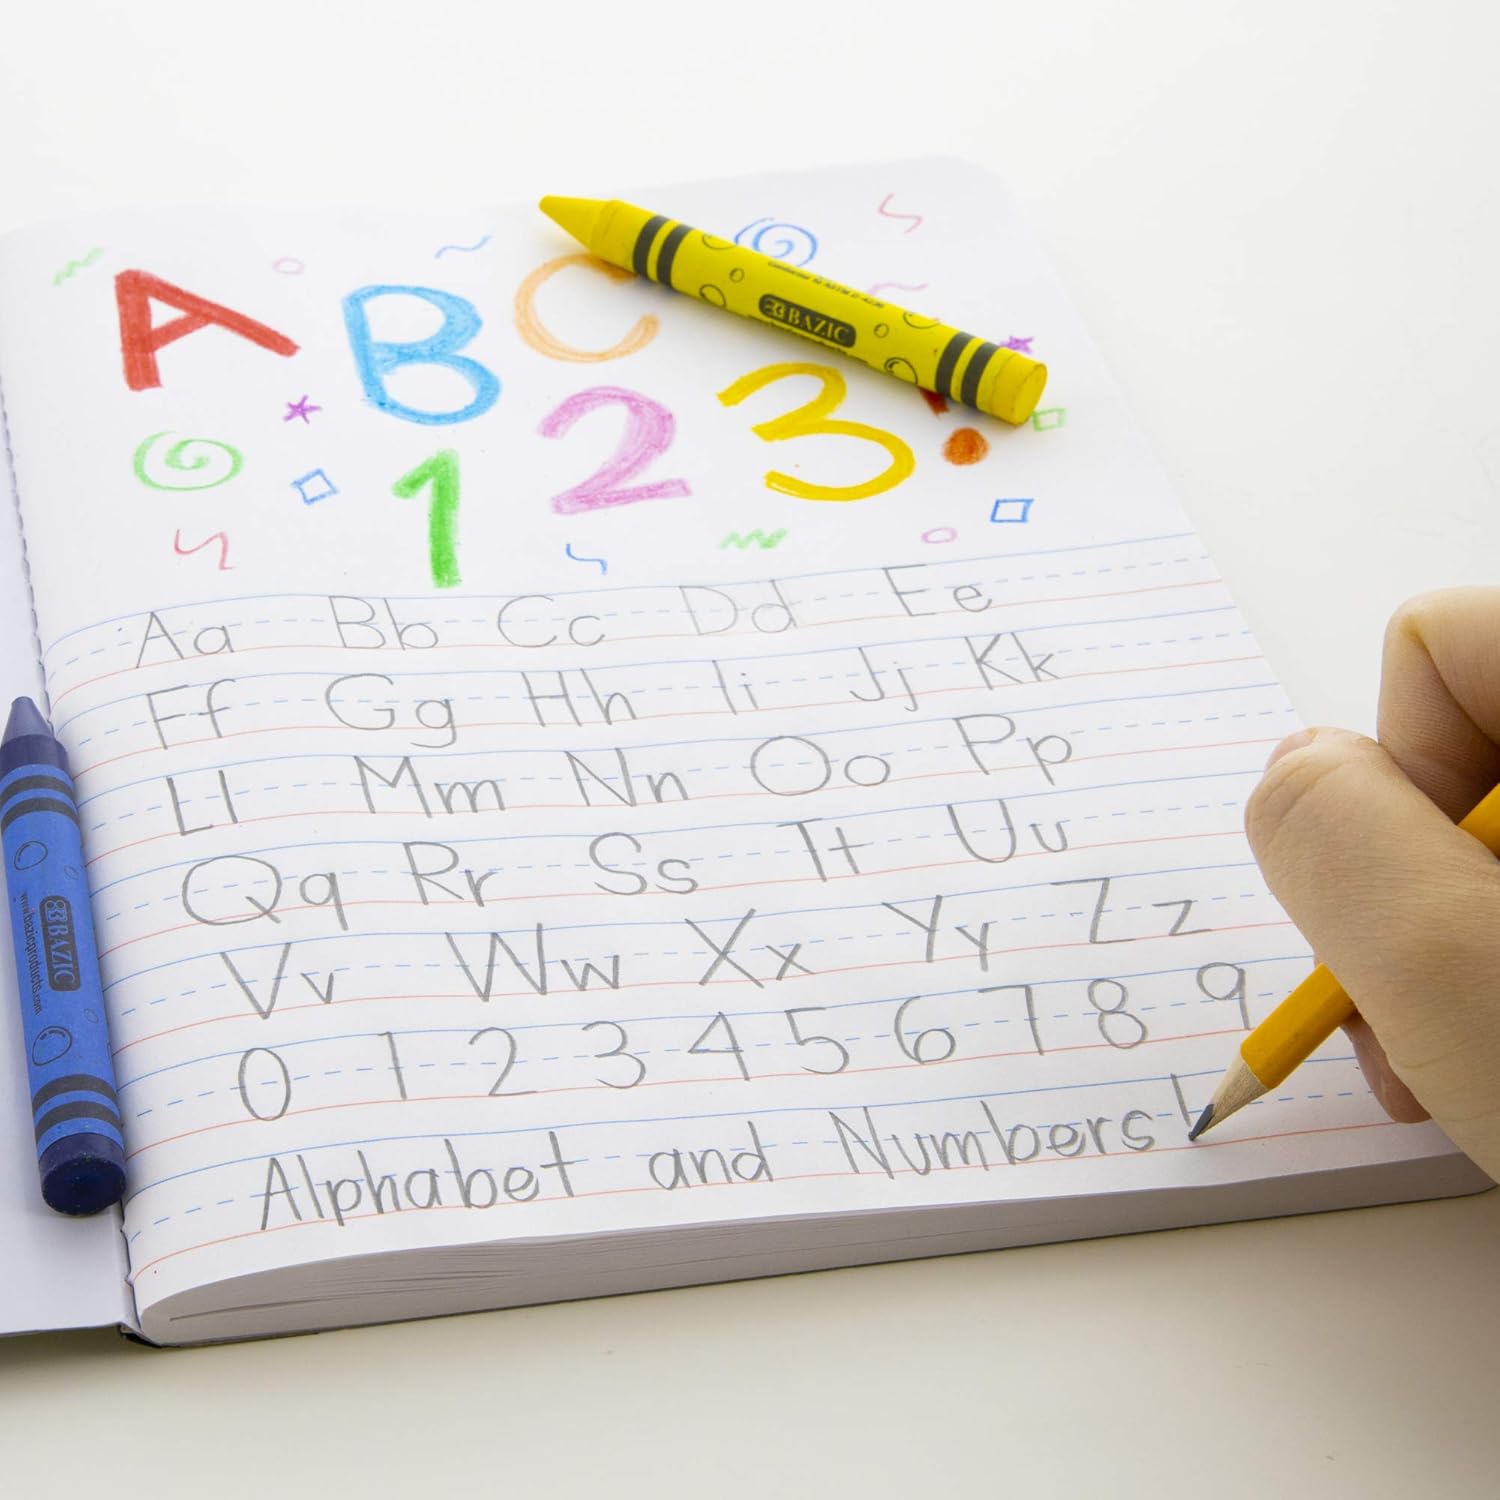 A B C
1 2 3 !
BAZIC
Aa Bb Cc Dd Ee
Ff Gg Hh Ii Jj Kk
Ll Mm Nn Oo Pp
Qq Rr Ss Tt Uu
Vv Ww Xx Yy Zz
0 1 2 3 4 5 6 7 8 9
Alphabet and Numbers!
BAZIC
www.bazicproducts.com